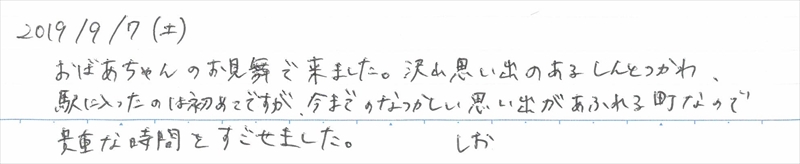 2019/9/7(土)
おばあちゃんのお見舞で来ました。沢山思い出のあるしんとつかわ、
駅に入ったのは初めてですが、今までのなつかしい思い出があふれる町なので
貴重な時間をすごせました。 しお